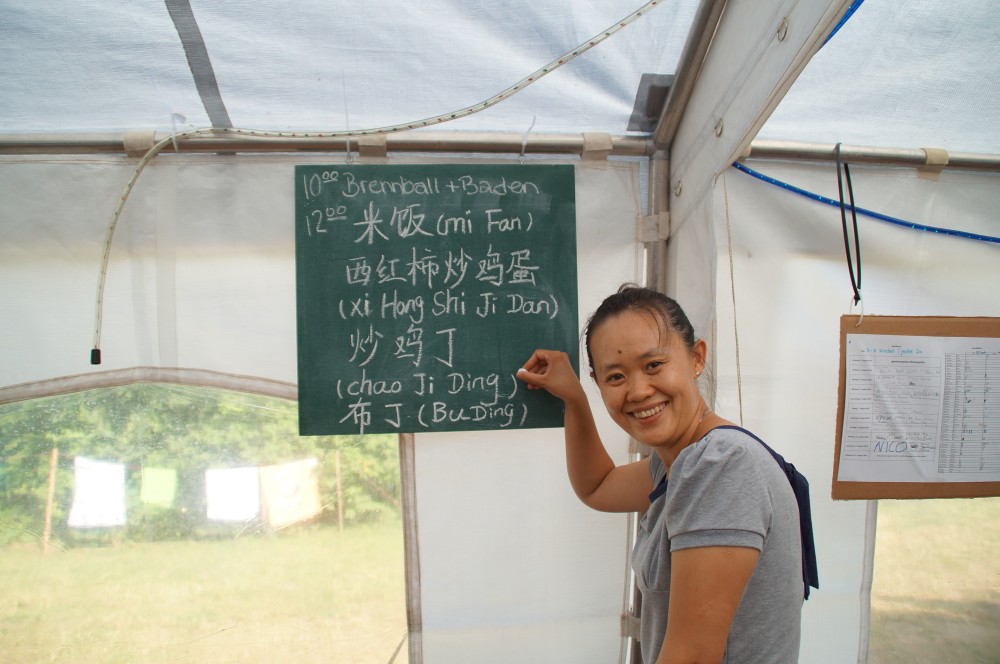 10⁰⁰ Brennball + Baden
12⁰⁰ 米饭 (mi Fan)
西红柿炒鸡蛋
(xi Hong Shi Ji Dan)
炒鸡丁
(chao Ji Ding)
布丁 (BuDing)
NICO